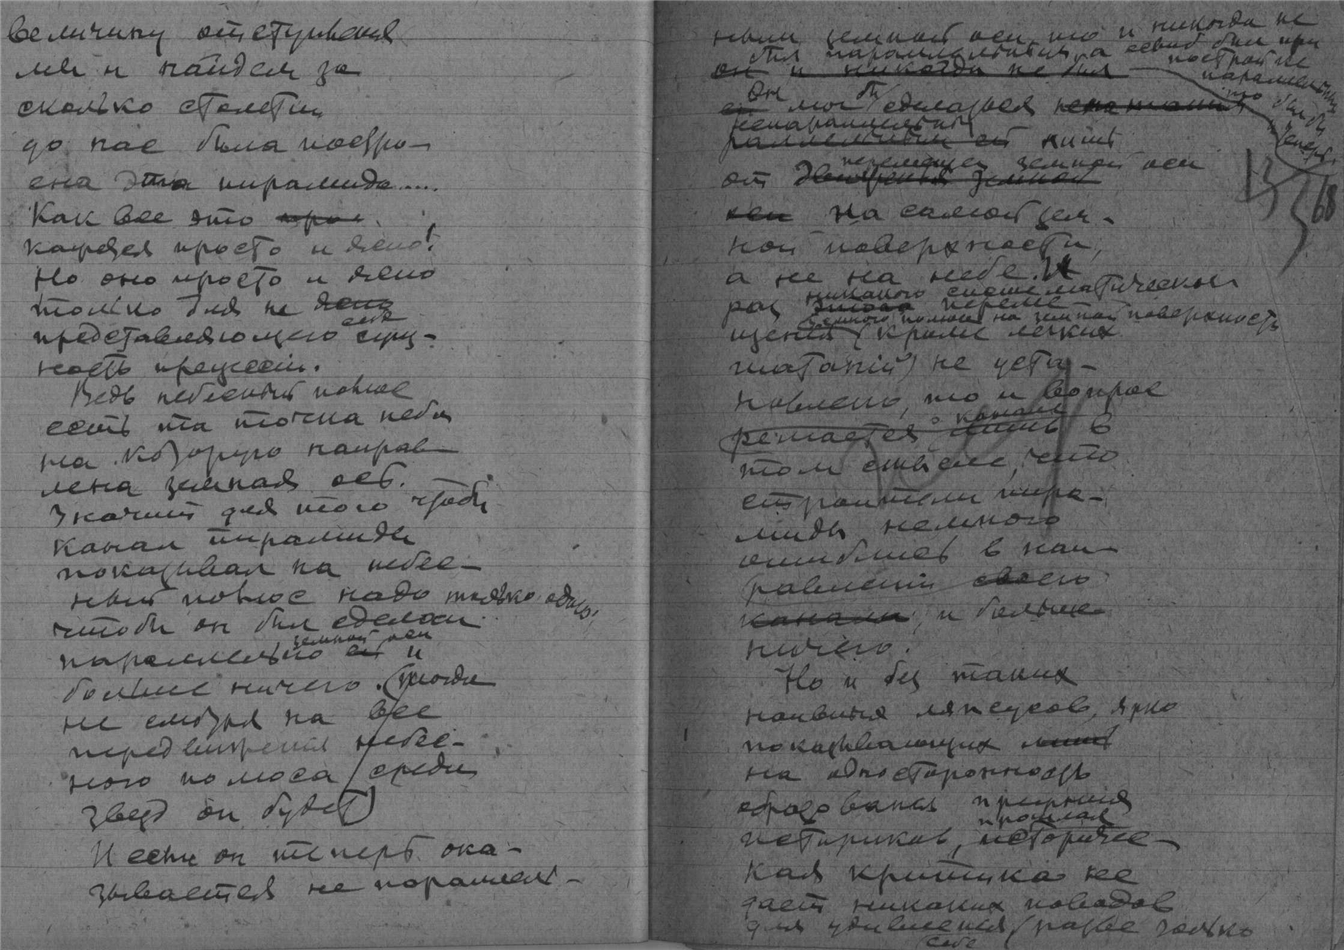 величину отступления
мы и найдем за
сколько столетий
до нас была постро-
ена эта пирамида.....
Как все это
кажется просто и ясно!
Но оно просто и ясно
только для не ясно
представляющего себе сущ-
ность прецессии.
Ведь небесный полюс
есть та точка неба
на которую направ-
лена земная ось.
Значит для того чтобы
канал пирамиды
показывал на небес-
ный полюс надо только одно,
чтобы он был сделан
земной оси
параллельно ей и
больше ничего. (тогда
не смотря на все
передвижения небес-
ного полюса среди
звезд он будет)
И если он теперь ока-
зывается не параллель-
ным земной оси то и никогда не
был параллельным, а
он и никогда не был
постройке
параллелен
то был бы
и теперь
Он мог бы сделаться
непараллельным
ей лишь
от перемещен земной оси
движения земной
оси на самой зем-
ной поверхности,
а не на небе. И
раз никакого систематическ.
переме-
земного полюса на земной поверхность
щения (кроме легких
шатаний) не уста-
новлено, то и вопрос
о канале
решается лишь в
том смысле, что
строители пира-
миды немного
ошиблись в нап-
равлении своего
канала, и больше
ничего.
Но и без таких
наивных ляпсусов, ярко
показывающих
на односторонность
образования прежних
историков, прошлая
историчес-
кая критика не
дает никаких поводов
для удивления (разве только
себе
13
368